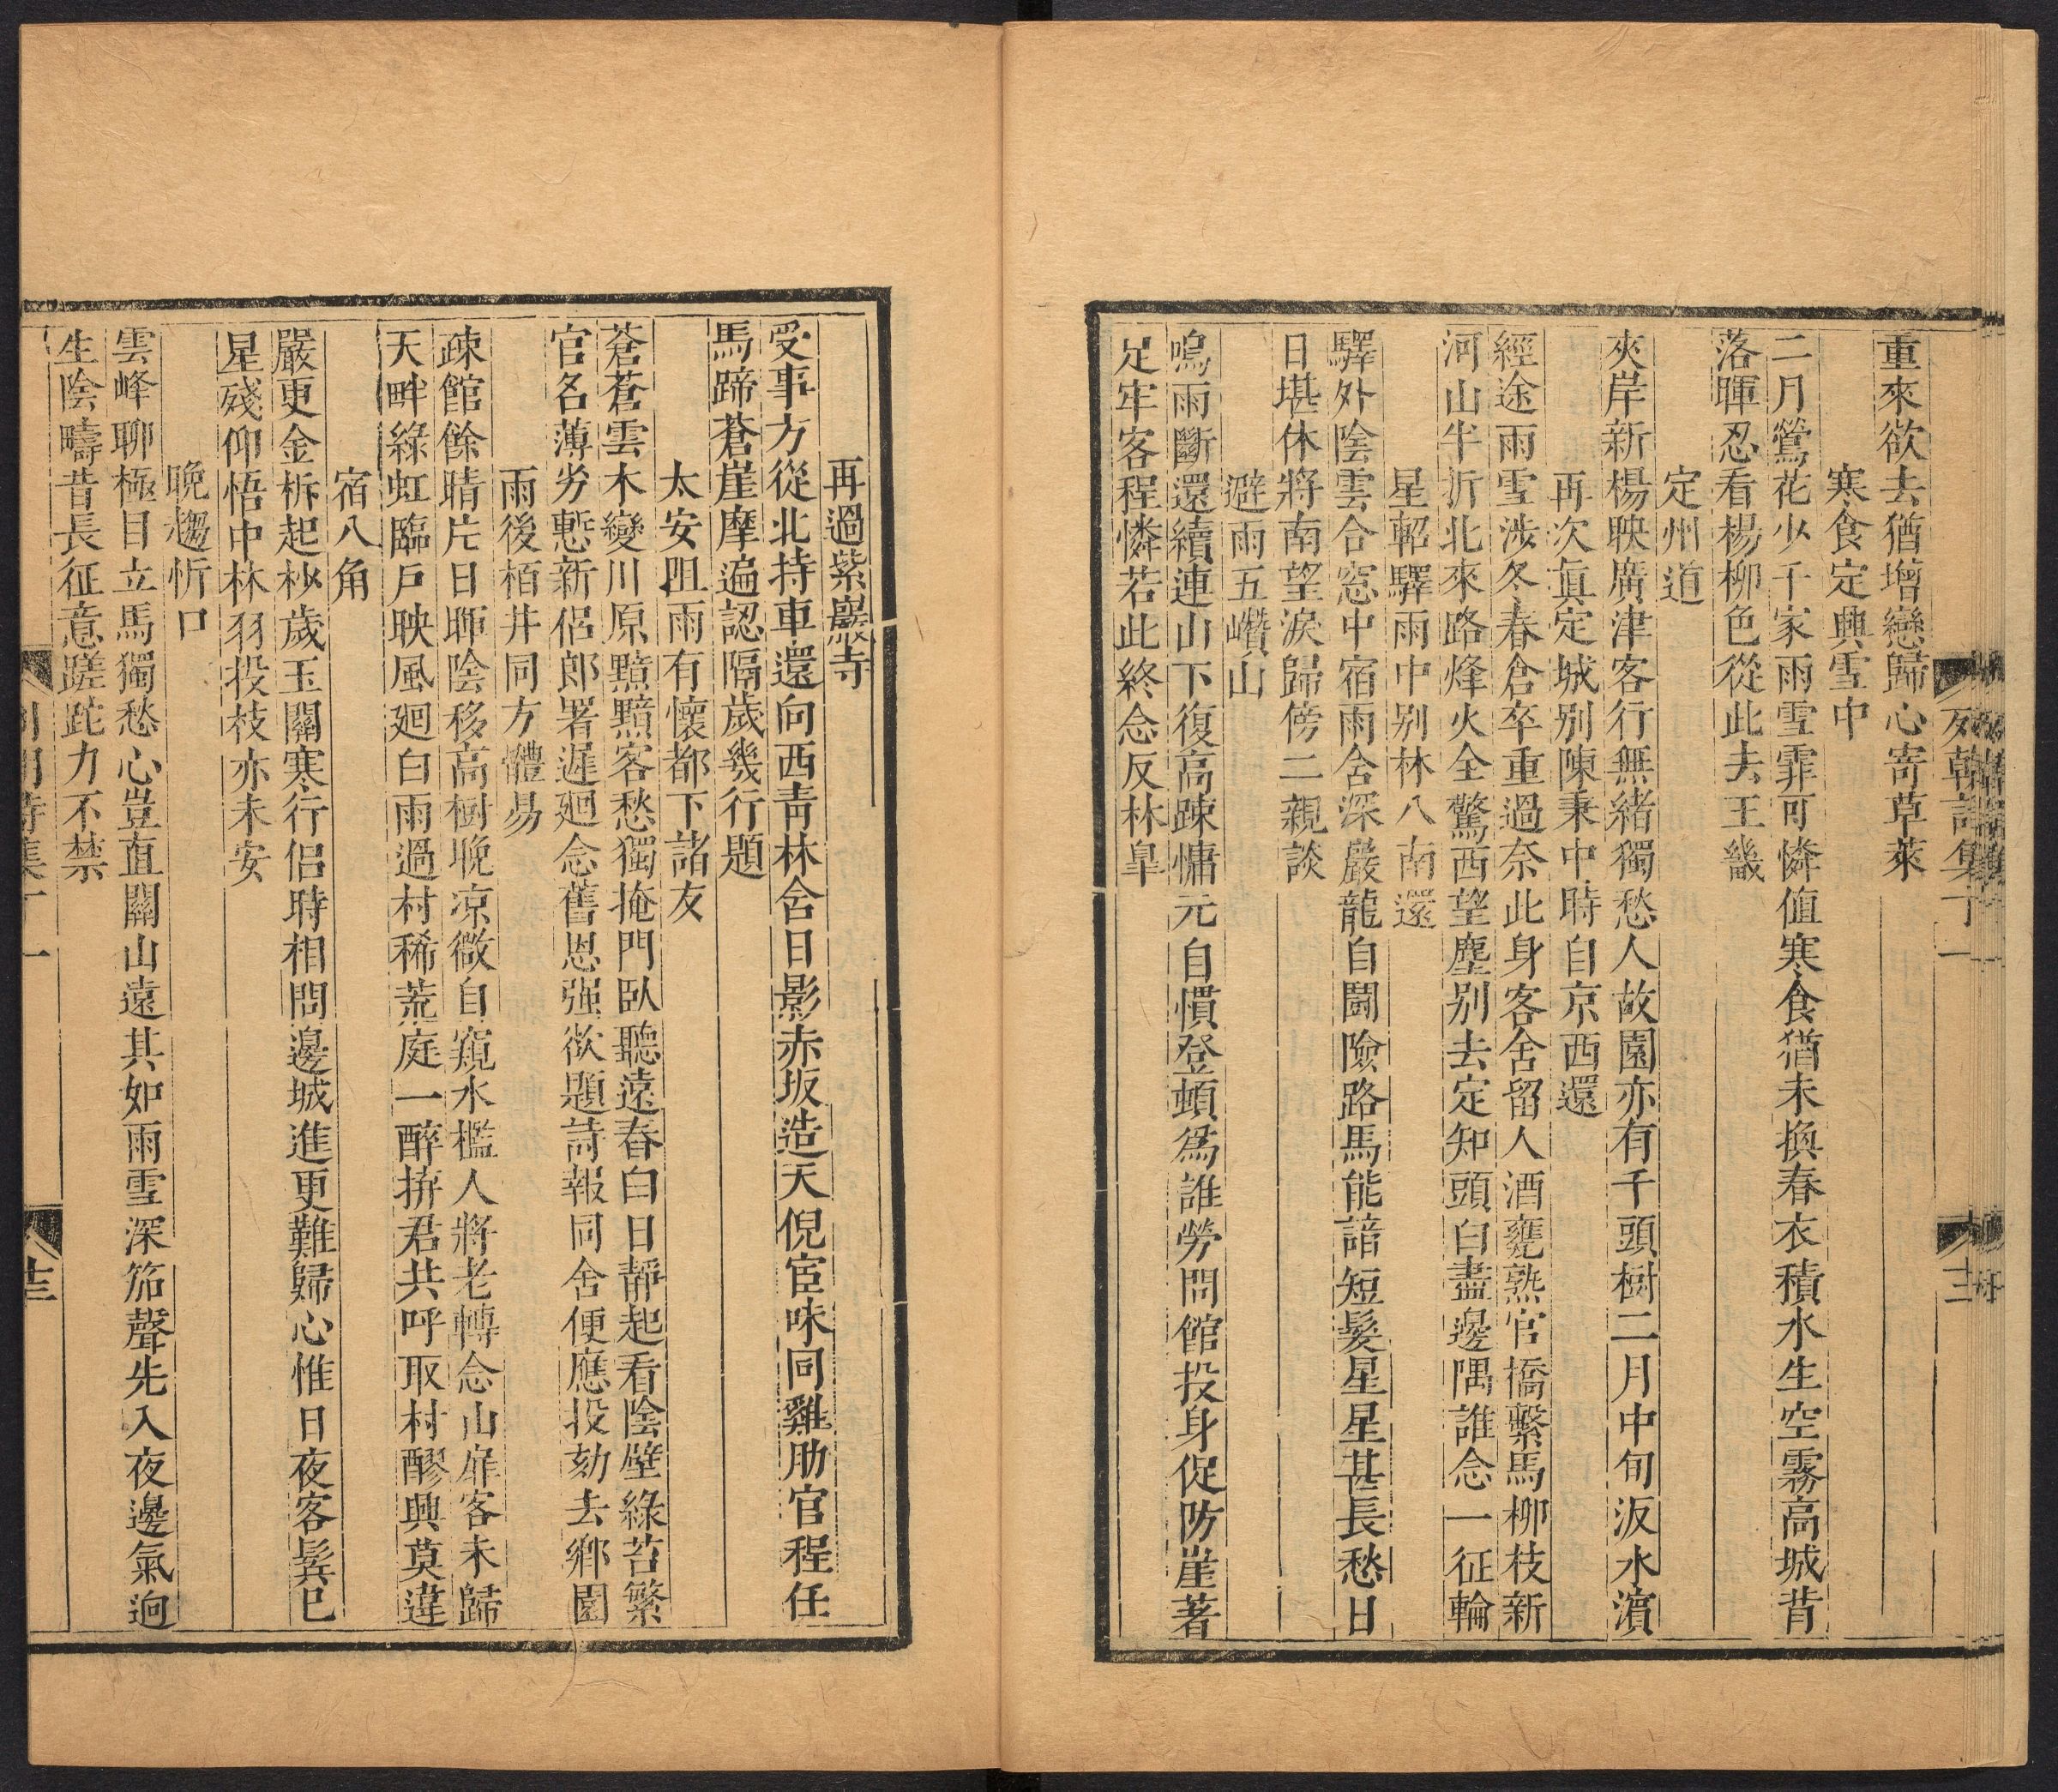 重來欲去猶增戀歸心寄草萊
寒食定興雪中
二月鶯花少千家雨雪霏可憐值寒食猶未換春衣積水生空霧高城背
落暉忍看楊柳色從此去王畿
定州道
夾岸新楊映廣津客行無緒獨愁人故園亦有千頭樹二月中旬汳水濵
再次眞定城别陳秉中時自京西還
經途雨雪涉冬春倉卒重過奈此身客舍留人酒甕熟官橋繫馬柳枝新
河山半折北來路烽火全驚西望塵别去定知頭白盡邊隅誰念一征輪
星軺驛雨中别林八南還
驛外陰雲合窓中宿雨含深嚴龍自鬪險路馬能諳短髮星星甚長愁日
日堪休將南望淚歸傍二親談
避雨五巑山
鳴雨斷還續連山下復高踈慵元自慣登頓爲誰勞問館投身促防崖著
足牢客程憐若此終念反林皐
三
再過紫巖寺
受事方從北持車還向西靑林含日影赤坂造天倪宦味同雞肋官程任
馬蹄蒼崖摩遍認隔歲幾行題
太安阻雨有懷都下諸友
蒼蒼雲木變川原黯黯客愁獨掩門臥聽遠春白日靜起看陰壁綠苔繁
官名薄劣慙新侶郎署遲廻念舊恩强欲題詩報同舍便應投劾去鄉園
雨後栢井同方體易
疎館餘晴片日暉陰移高樹晚凉微自窺水檻人將老轉念山扉客未歸
天畔綠虹臨戸映風廻白雨過村稀荒庭一醉拚君共呼取村醪興莫違
宿八角
嚴更金柝起杪歲玉關寒行侶時相問邊城進更難歸心惟日夜客鬂已
星殘仰悟中林羽投枝亦未安
晚趨忻口
雲峰聊極目立馬獨愁心豈直關山遠其如雨雪深笳聲先入夜邊氣迥
生陰疇昔長征意蹉跎力不禁